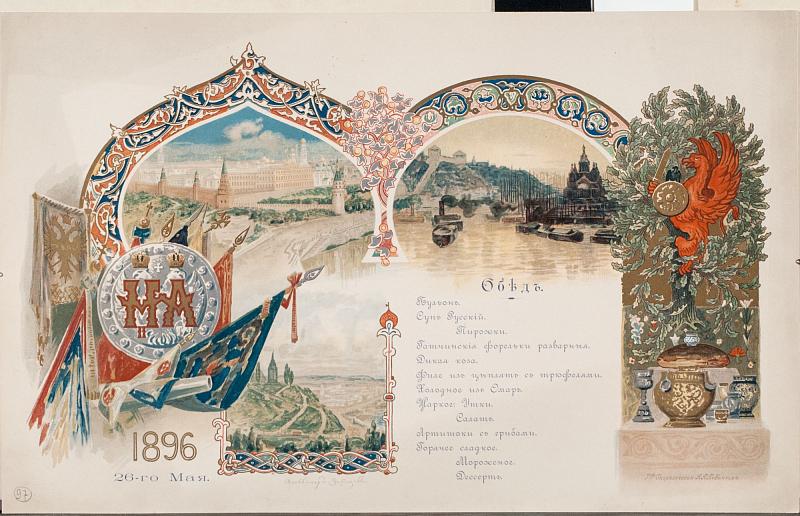 Н А
II
1896
26-го Мая.
Обѣдъ.
Бульонъ.
Супъ Русскій.
Пирожки.
Гатчинскія форельки разварныя.
Дикая коза.
Филе изъ цыплятъ съ трюфелями.
Холодное изъ Омаръ.
Жаркое: Утки.
Салатъ.
Артишоки съ грибами.
Горячее сладкое.
Мороженое.
Дессертъ.
97